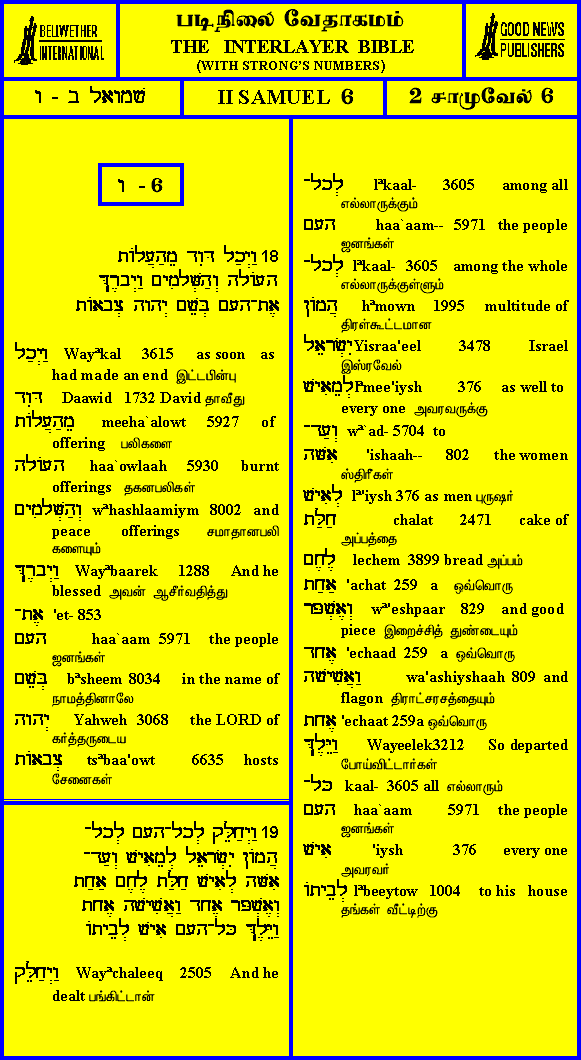 BELLWETHER
INTERNATIONAL
படிநிலை வேதாகமம்
THE INTERLAYER BIBLE
(WITH STRONG'S NUMBERS)
GOOD NEWS
PUBLISHERS
שמואל ב - ו
II SAMUEL 6
2 சாமுவேல் 6
ו - 6
18 וַיְכַל דּוִד מֵהַעֲלוֹת
העוֹלה וְהַשְּׁלמִים וַיְברֶךְ
אֶת־העם בְּשֵׁם יְהוה צְבאוֹת
וַיְכַל Wayªkal 3615 as soon as
had made an end இட்டபின்பு
דּוִד Daawid 1732 David தாவீது
מֵהַעֲלוֹת meeha`alowt 5927 of
offering பலிகளை
העוֹלה haa`owlaah 5930 burnt
offerings தகனபலிகள்
וְהַשְּׁלמִים wªhashlaamiym 8002 and
peace offerings சமாதானபலி
களையும்
וַיְברֶךְ Wayªbaarek 1288 And he
blessed அவன் ஆசீர்வதித்து
אֶת־ 'et- 853
העם haa`aam 5971 the people
ஜனங்கள்
בְּשֵׁם bªsheem 8034 in the name of
நாமத்தினாலே
יְהוה Yahweh 3068 the LORD of
கர்த்தருடைய
צְבאוֹת tsªbaa'owt 6635 hosts
சேனைகள்
19 וַיְחַלֵּק לְכל־העם לְכל־
הֲמוֹן יִשְׂראֵל לְמֵאִישׁ וְעַד־
אִשּׁה לְאִישׁ חַלַּת לֶחֶם אַחַת
וְאֶשְׁפּר אֶחד וַאֲשִׁישׁה אֶחת
וַיֵּלֶךְ כּל־העם אִישׁ לְבֵיתוֹ
וַיְחַלֵּק Wayªchaleeq 2505 And he
dealt பங்கிட்டான்
לְכל־ lªkaal- 3605 among all
எல்லாருக்கும்
העם haa`aam-- 5971 the people
ஜனங்கள்
לְכל־ lªkaal- 3605 among the whole
எல்லாருக்குள்ளும்
הֲמוֹן hªmown 1995 multitude of
திரள்கூட்டமான
יִשְׂראֵל Yisraa'eel 3478 Israel
இஸ்ரவேல்
לְמֵאִישׁ lªmee'iysh 376 as well to
every one அவரவருக்கு
וְעַד־ wª`ad- 5704 to
אִשּׁה 'ishaah-- 802 the women
ஸ்திரீகள்
לְאִישׁ lª'iysh 376 as men புருஷர்
חַלַּת chalat 2471 cake of
அப்பத்தை
לֶחֶם lechem 3899 bread அப்பம்
אַחַת 'achat 259 a ஒவ்வொரு
וְאֶשְׁפּר wª'eshpaar 829 and good
piece இறைச்சித் துண்டையும்
אֶחד 'echaad 259 a ஒவ்வொரு
וַאֲשִׁישׁה wa'ashiyshaah 809 and
flagon திராட்சரசத்தையும்
אֶחת 'echaat 259 a ஒவ்வொரு
וַיֵּלֶךְ Wayeelek 3212 So departed
போய்விட்டார்கள்
כּל־ kaal- 3605 all எல்லாரும்
העם haa`aam 5971 the people
ஜனங்கள்
אִישׁ 'iysh 376 every one
அவரவர்
לְבֵיתוֹ lªbeeytow 1004 to his house
தங்கள் வீட்டிற்கு